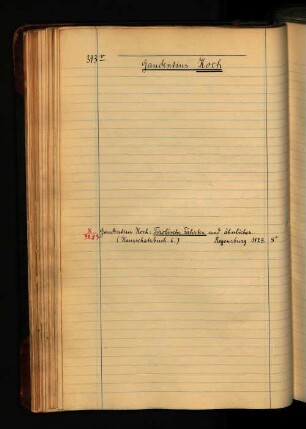 313ᵛ
Gaudentius Koch
K
3283
Gaudentius Koch: Tirolische Fahrten und ähnliches.
(Hausschatzbuch 6.) Regensburg 1923. 8°